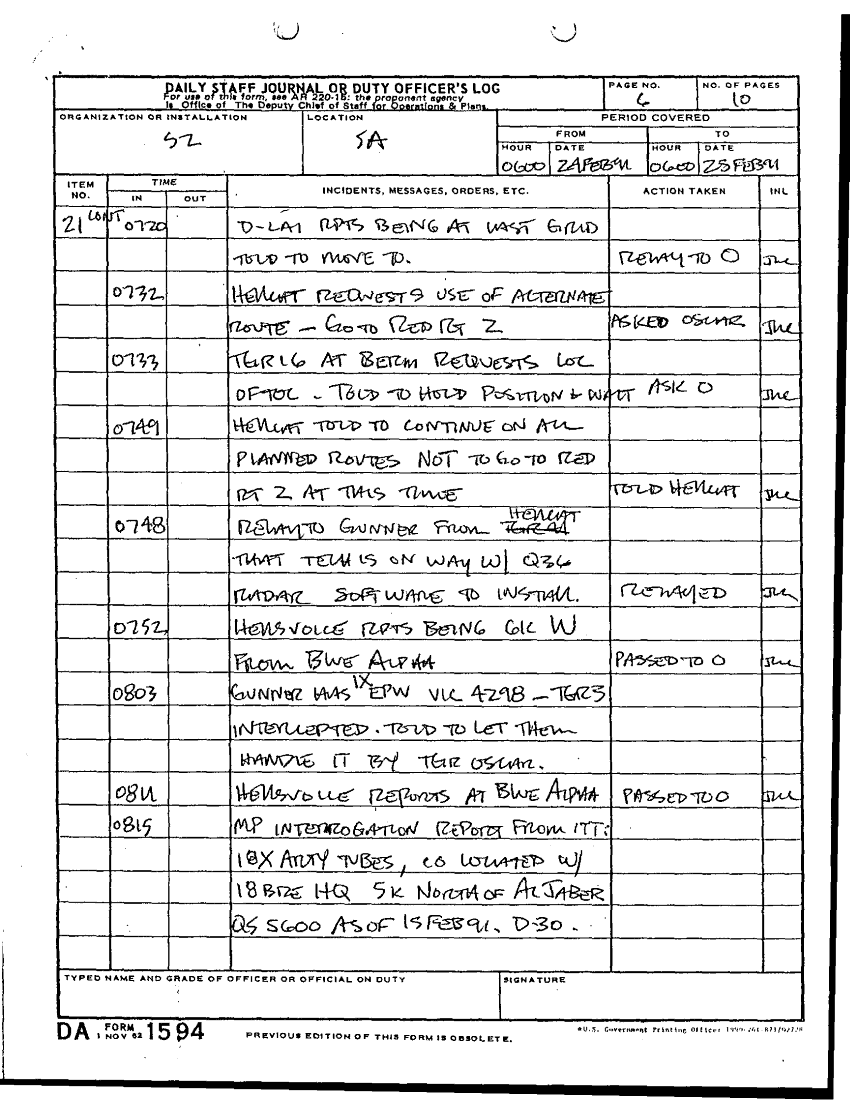 DAILY STAFF JOURNAL OR DUTY OFFICER'S LOG
For use of this form, see AR 220-15; the proponent agency
is Office of The Deputy Chief of Staff for Operations & Plans.
PAGE NO.
6
NO. OF PAGES
10
ORGANIZATION OR INSTALLATION
S2
LOCATION
SA
PERIOD COVERED
FROM
TO
HOUR DATE HOUR DATE
0600 24FEB91 0600 25FEB91
ITEM NO. TIME INCIDENTS, MESSAGES, ORDERS, ETC. ACTION TAKEN INL
IN OUT
21 CONT 0720 RPTS BEING AT LAST GRID
TOLD TO MOVE TO. RELAY TO O
0732 HELLCAT REQUESTS USE OF ALTERNATE
ROUTE - GO TO RED RT 2 ASKED OSCAR
0733 TGR16 AT BERM REQUESTS LOC
OF TOC - TOLD TO HOLD POSITION & WAIT ASK O
0749 HELLCAT TOLD TO CONTINUE ON ALL
PLANNED ROUTES NOT TO GO TO RED
RT 2 AT THIS TIME TOLD HELLCAT
0748 RELAY TO GUNNER FROM HELLCAT
THAT TECH IS ON WAY W/ Q36
RADAR SOFTWARE TO INSTALL. RELAYED
0752 HELLSVOICE RPTS BEING 6K W
FROM BLUE ALPHA PASSED TO O
0803 GUNNER HAS 1X EPW VIC 4298 - TGR3
INTERCEPTED. TOLD TO LET THEM
HANDLE IT BY TGR OSCAR.
0811 HELLSVOICE REPORTS AT BLUE ALPHA PASSED TO O
0815 MP INTERROGATION REPORT FROM ITT:
18X ARTY TUBES, CO LOCATED W/
18 BDE HQ 5K NORTH OF AL JABER
QS 5600 AS OF 15FEB91. D-30.
TYPED NAME AND GRADE OF OFFICER OR OFFICIAL ON DUTY
SIGNATURE
DA FORM 1 NOV 62 1594
PREVIOUS EDITION OF THIS FORM IS OBSOLETE.
U.S. Government Printing Office: